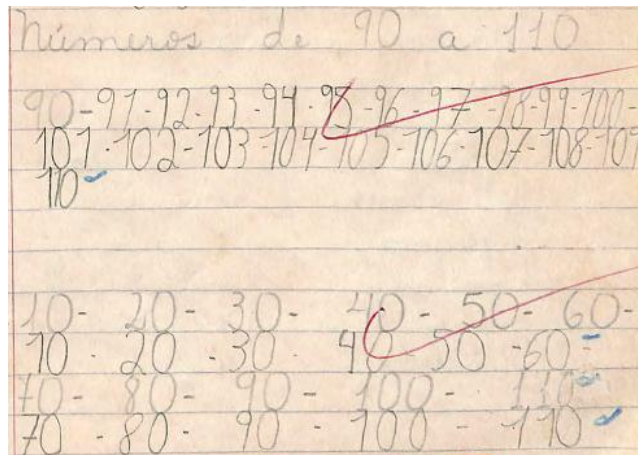 Números de 90 a 110
90-91-92-93-94-95-96-97-98-99-100-
101-102-103-104-105-106-107-108-109
110
10- 20- 30- 40- 50- 60-
10 - 20 - 30 - 40 - 50 - 60-
70- 80- 90- 100- 110
70 - 80 - 90 - 100 - 110